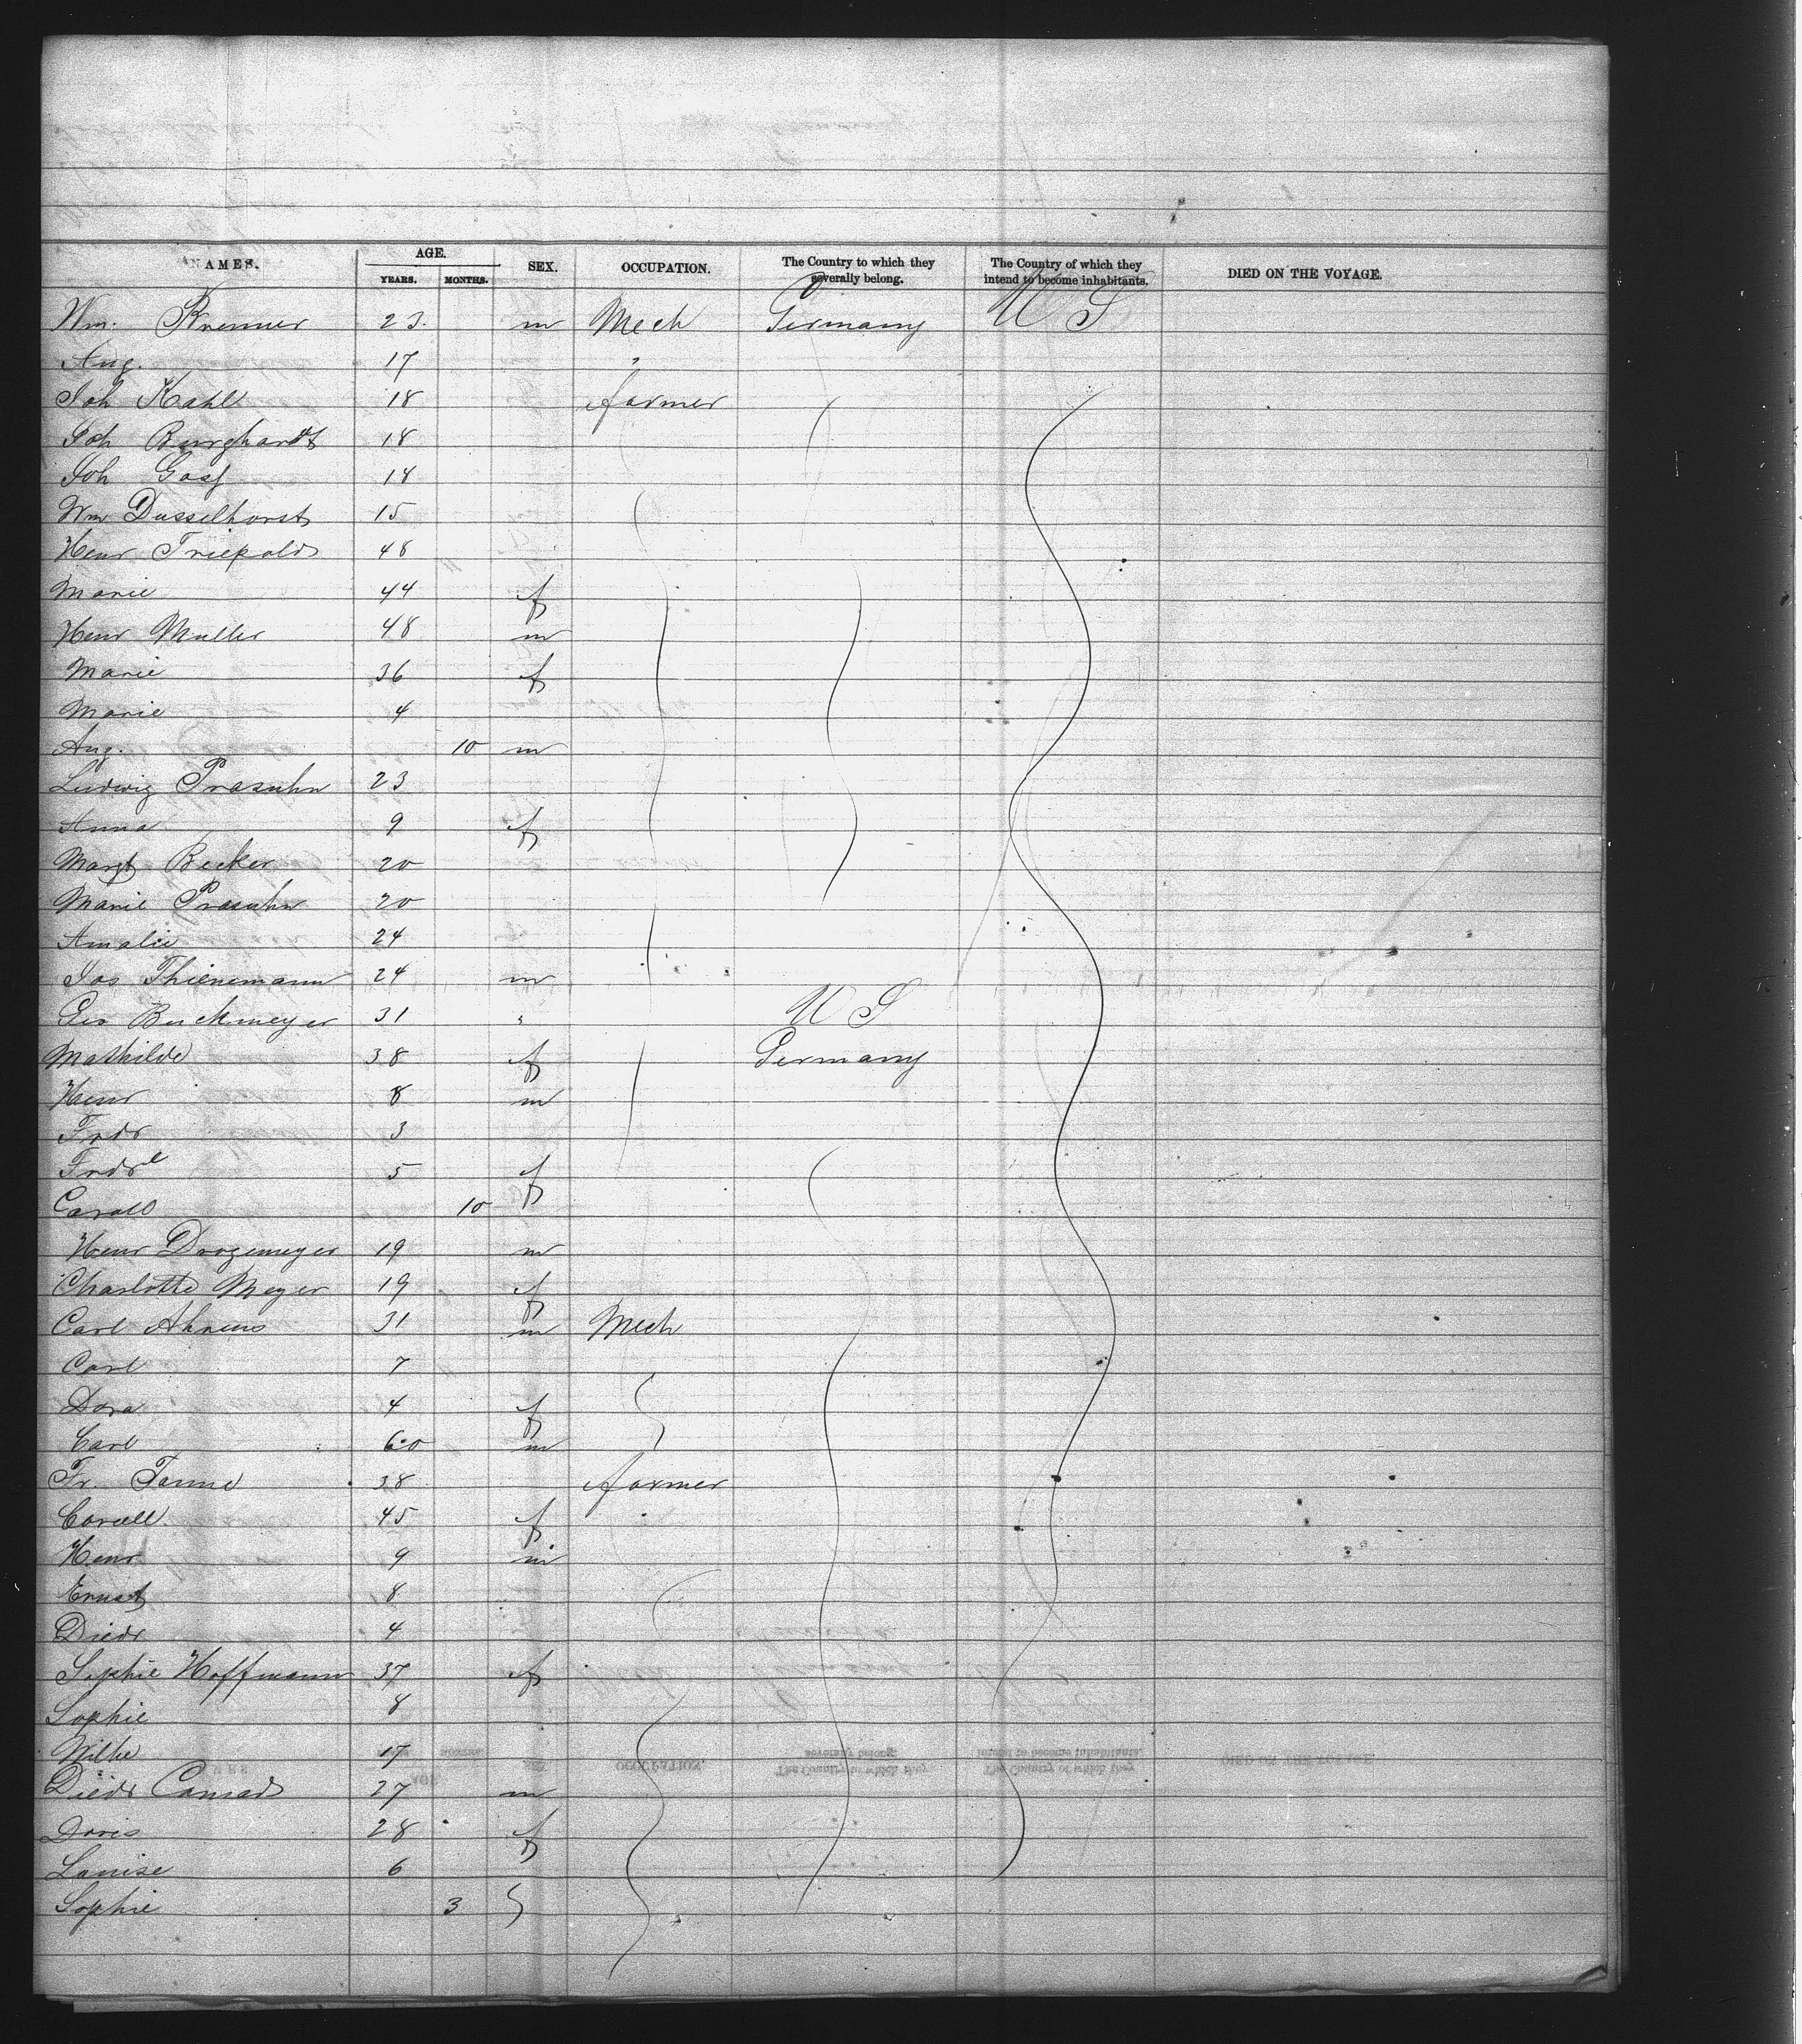 NAMES. AGE. SEX. OCCUPATION. The Country to which they severally belong. The Country of which they intend to become inhabitants. DIED ON THE VOYAGE.
YEARS. MONTHS.
Wm. Kremer 23 m Mech Germany U S
Aug. 17 "
Joh Kahl 18 farmer
Joh Burghardt 18
Joh 18
Wm Dusselhorst 15
Henr Triepold 48
Marie 44 f
Henr Muller 48 m
Marie 36 f
Marie 4
Aug. 10 m
Ludwig Prasuhn 23
Anna 9 f
Margt Becker 20
Marie Prasuhn 20
Amalie 24
Jos Thienemann 24 m
Geo Buckmeyer 31 " U S
Mathilde 38 f Germany
Henr 8 m
Frdr 3
Frdre 5 f
10
Henr Drogemeyer 19 m
Charlotte Meyer 19 f
Carl Ahrens 31 m Mech
Carl 7
Dora 4 f
Carl 60 m
Fr. 38 farmer
45 f
Henr 9 m
Ernst 8
Diedr 4
Sophie Hoffmann 37 f
Sophie 8
17
Diedr Conrad 27 m
Doris 28 f
Louise 6
Sophie 3